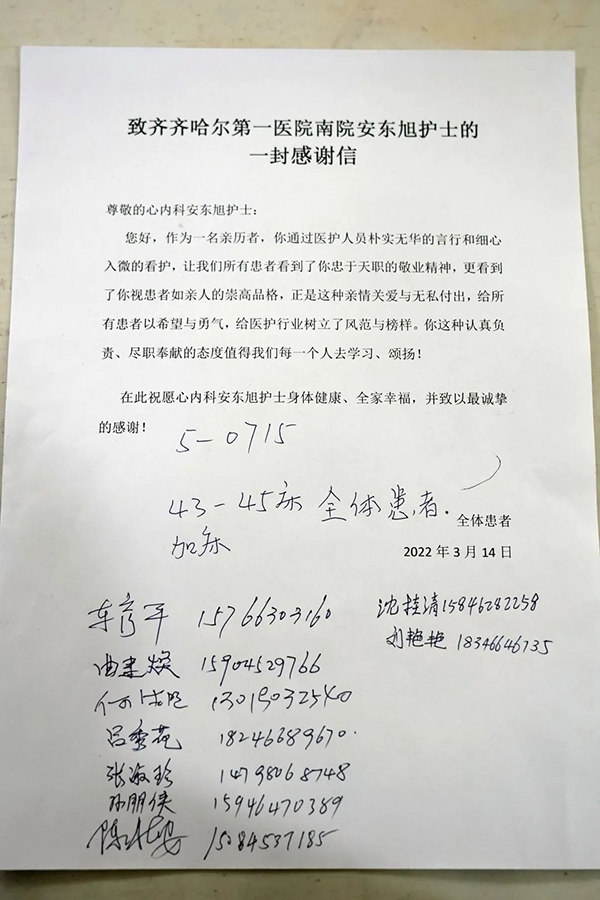 致齐齐哈尔第一医院南院安东旭护士的
一封感谢信
尊敬的心内科安东旭护士：
您好，作为一名亲历者，你通过医护人员朴实无华的言行和细心
入微的看护，让我们所有患者看到了你忠于天职的敬业精神，更看到
了你视患者如亲人的崇高品格，正是这种亲情关爱与无私付出，给所
有患者以希望与勇气，给医护行业树立了风范与榜样。你这种认真负
责、尽职奉献的态度值得我们每一个人去学习、颂扬！
在此祝愿心内科安东旭护士身体健康、全家幸福，并致以最诚挚
的感谢！
5-0715
43-45床 全体患者.
加床
全体患者
2022 年 3 月 14 日
15766303160
沈桂清 15846282258
刘艳艳 18346646735
曲建焕 15904529766
13019032540
吕秀花 18246689670
张淑珍 14798068748
孙朋侠 15946470389
15084537185